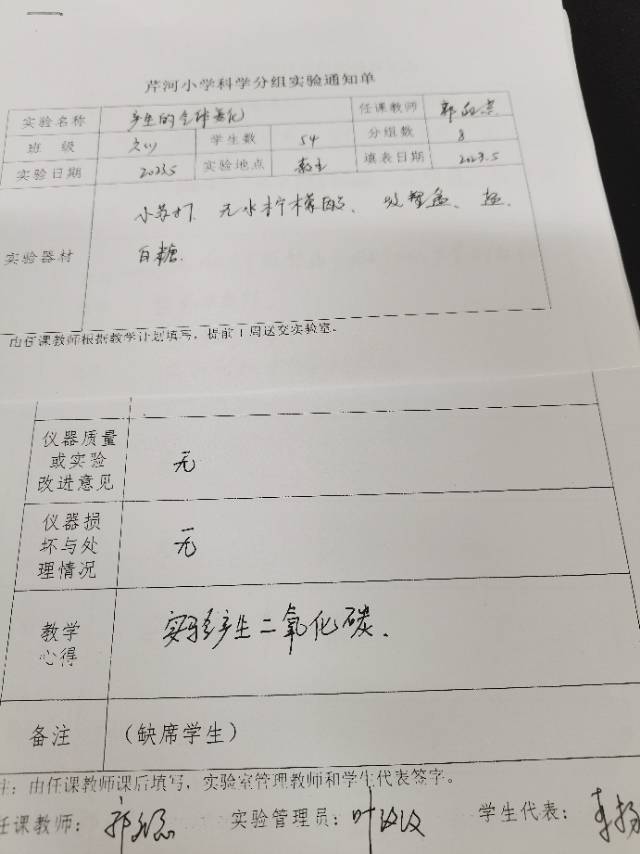 芹河小学科学分组实验通知单
实验名称 产生的气体变化 任课教师
班 级 学生数 54 分组数 8
实验日期 2023.5 实验地点 教室 填表日期 2023.5
实验器材 小苏打、无水柠檬酸、 盐、
白糖.
由任课教师根据教学计划填写，提前1周送交实验室。
仪器质量
或实验
改进意见
无
仪器损
坏与处
理情况
无
教学
心得
实验产生二氧化碳.
备注 (缺席学生)
注：由任课教师课后填写，实验室管理教师和学生代表签字。
任课教师： 实验管理员： 学生代表：